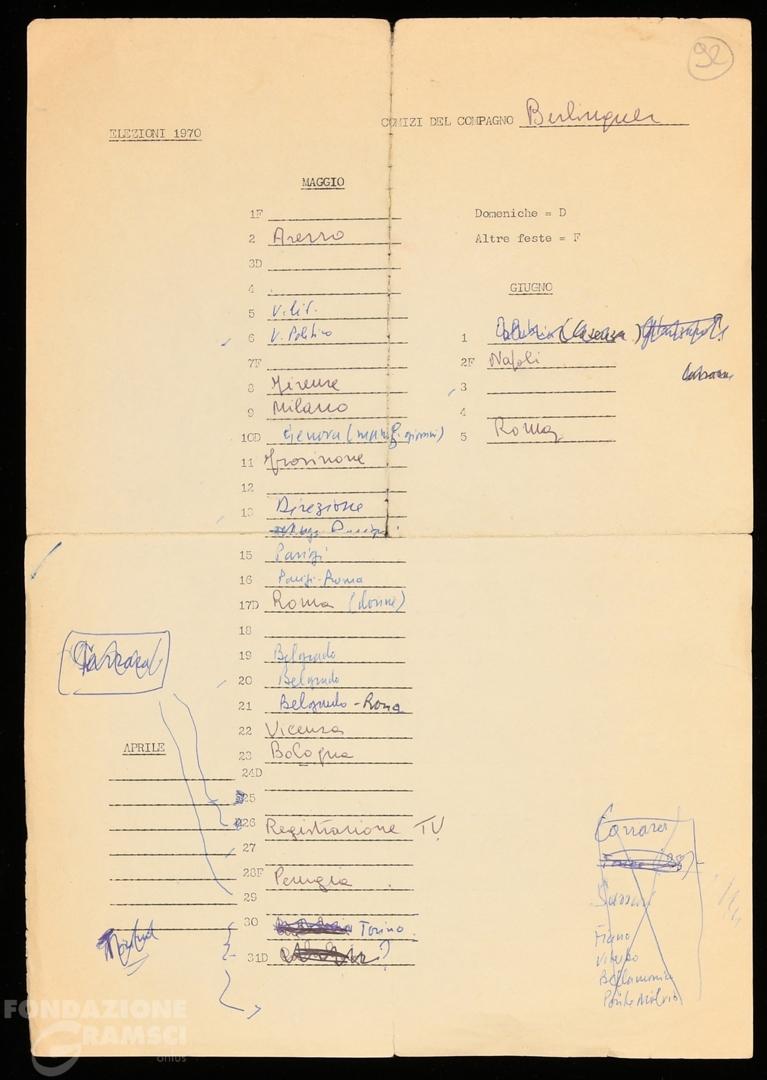 92
ELEZIONI 1970
COMIZI DEL COMPAGNO Berlinguer
MAGGIO
1F
2 Arezzo
3D
4
5 V. lit.
6 V. Politico
7F
8 Firenze
9 Milano
10D Genova (manif. giovani)
11 Frosinone
12
13 Direzione
15 Parigi
16 Parigi-Roma
17D Roma (donne)
18
19 Belgrado
20 Belgrado
21 Belgrado - Roma
22 Vicenza
23 Bologna
24D
25
26 Registrazione TV
27
28F Perugia
29
30 Torino
31D ?
Domeniche = D
Altre feste = F
GIUGNO
1
2F Napoli
3
4
5 Roma
APRILE
Carrara
Sassari
Fiano
Viterbo
Ponte Milvio
FONDAZIONE
GRAMSCI
onlus